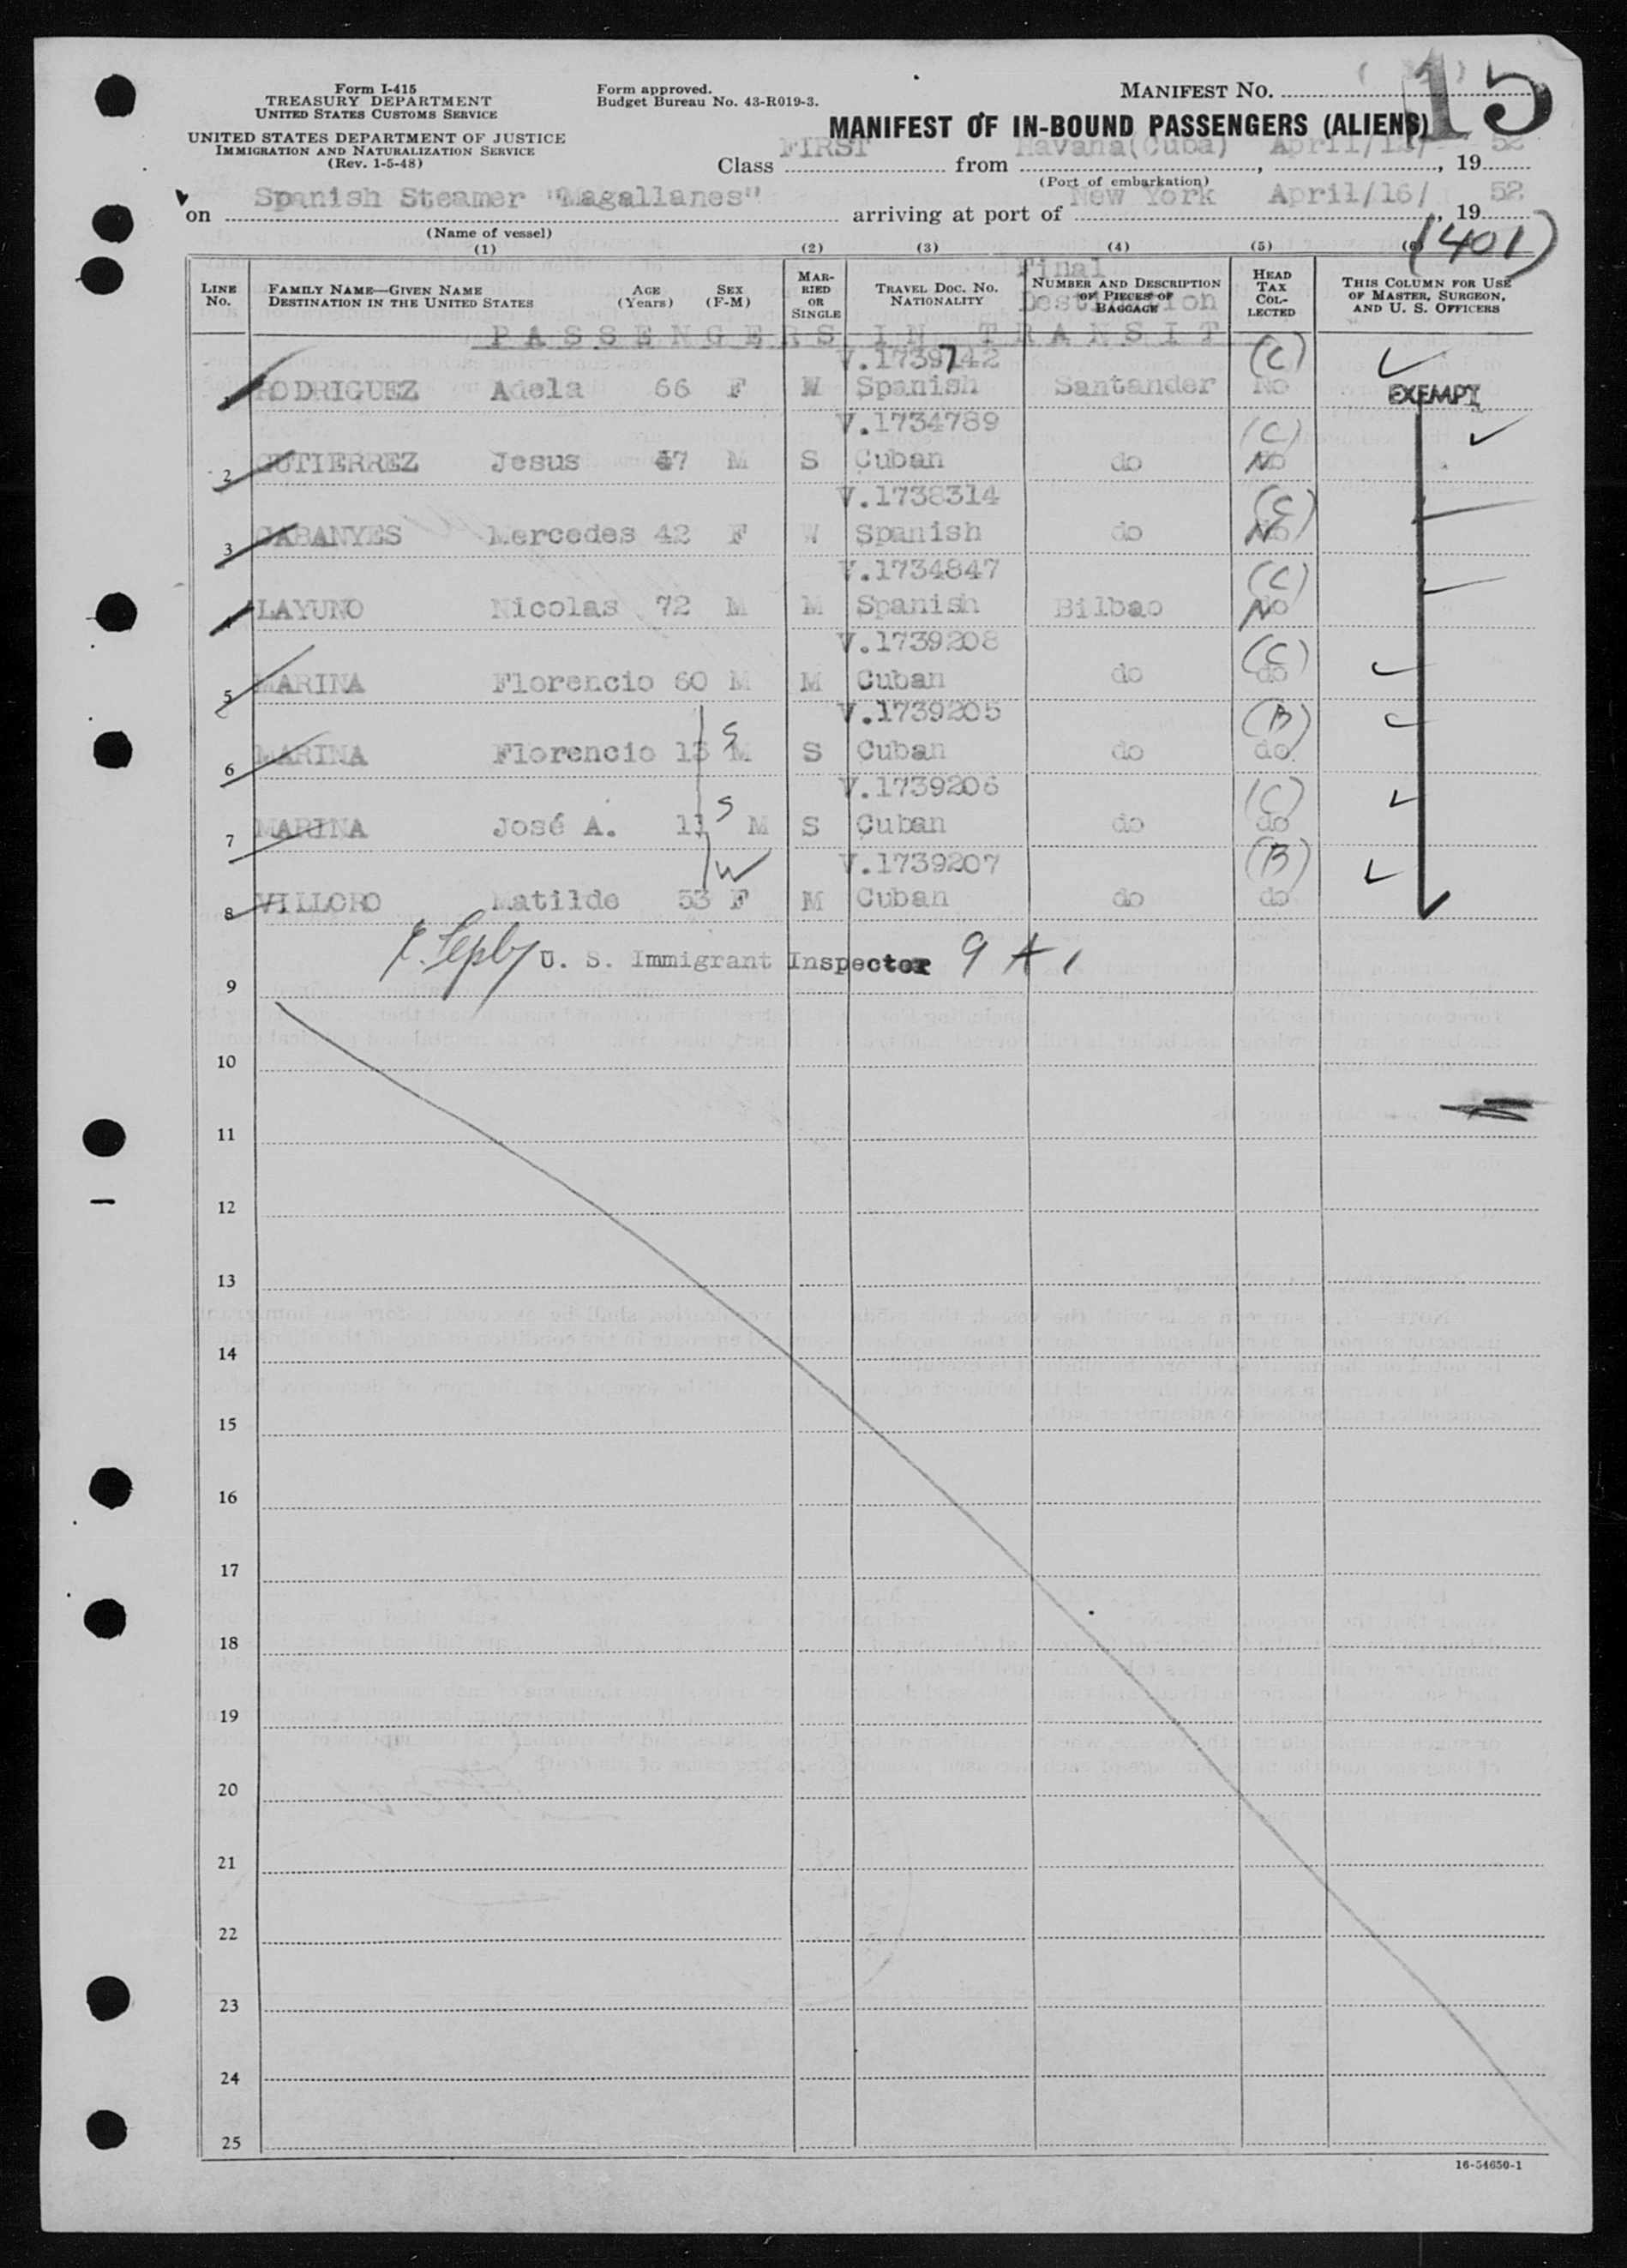 Form I-415
TREASURY DEPARTMENT
UNITED STATES CUSTOMS SERVICE
UNITED STATES DEPARTMENT OF JUSTICE
IMMIGRATION AND NATURALIZATION SERVICE
(Rev. 1-5-48)
Form approved.
Budget Bureau No. 43-R019-3.
MANIFEST NO.
15
MANIFEST OF IN-BOUND PASSENGERS (ALIENS)
Class FIRST from Havana(Cuba) , April/ , 19 52
(Port of embarkation)
on Spanish Steamer "Magallanes" arriving at port of New York April/16/ , 19 52
(Name of vessel)
(401)
(1) (2) (3) (4) (5) (6)
LINE No. FAMILY NAME—GIVEN NAME DESTINATION IN THE UNITED STATES AGE (Years) SEX (F-M) MARRIED OR SINGLE TRAVEL DOC. NO. NATIONALITY NUMBER AND DESCRIPTION OF PIECES OF BAGGAGE HEAD TAX COLLECTED THIS COLUMN FOR USE OF MASTER, SURGEON, AND U. S. OFFICERS
Final Destination
PASSENGERS IN TRANSIT
V.1739742 (C)
1 RODRIGUEZ Adela 66 F W Spanish Santander No EXEMPT
V.1734789 (C)
2 GUTIERREZ Jesus 47 M S Cuban do No
V.1738314 (C)
3 CABANYES Mercedes 42 F W Spanish do No
V.1734847 (C)
4 LAYUNO Nicolas 72 M M Spanish Bilbao No
V.1739208 (C)
5 MARINA Florencio 60 M M Cuban do do
V.1739205 (B)
6 MARINA Florencio 13 S M S Cuban do do
V.1739206 (C)
7 MARINA José A. 11 S M S Cuban do do
V.1739207 (B)
8 VILLORO Matilde 53 W F M Cuban do do
U. S. Immigrant Inspector
9
10
11
12
13
14
15
16
17
18
19
20
21
22
23
24
25
16-54650-1